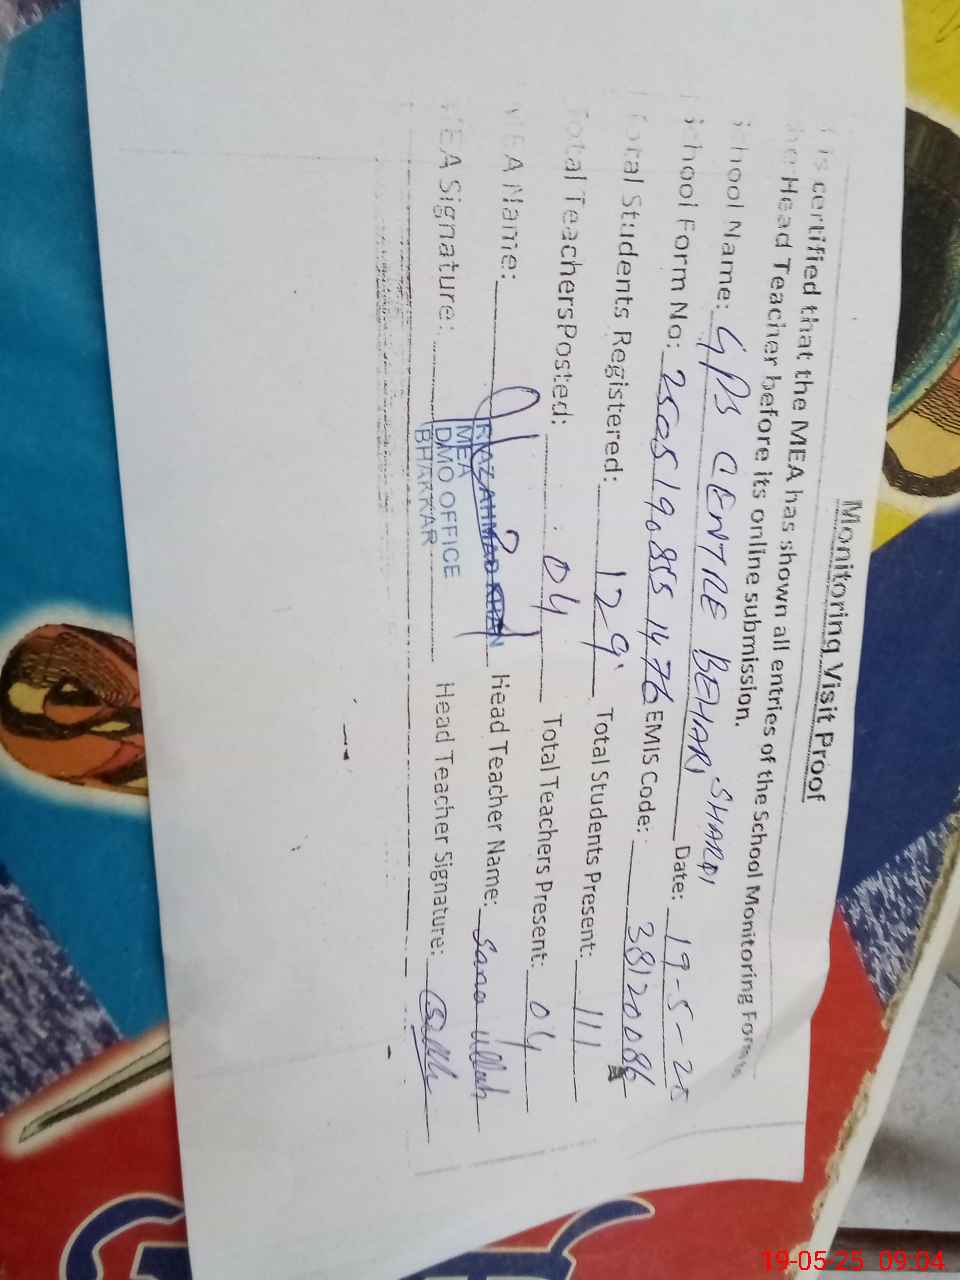 Monitoring Visit Proof
is certified that the MEA has shown all entries of the School Monitoring Form to
the Head Teacher before its online submission.
School Name: GPS CENTRE BEHARI SHARQI Date: 19-5-25
School Form No: 2505190855 1476 EMIS Code: 38120086
Total Students Registered: 129 Total Students Present: 111
Total Teachers Posted: 04 Total Teachers Present: 04
MEA Name: Head Teacher Name: Sana ullah
MEA Signature: Head Teacher Signature:
RIAZ AHMAD KHAN
MEA
DMO OFFICE
BHAKKAR
19-05-25 09:04